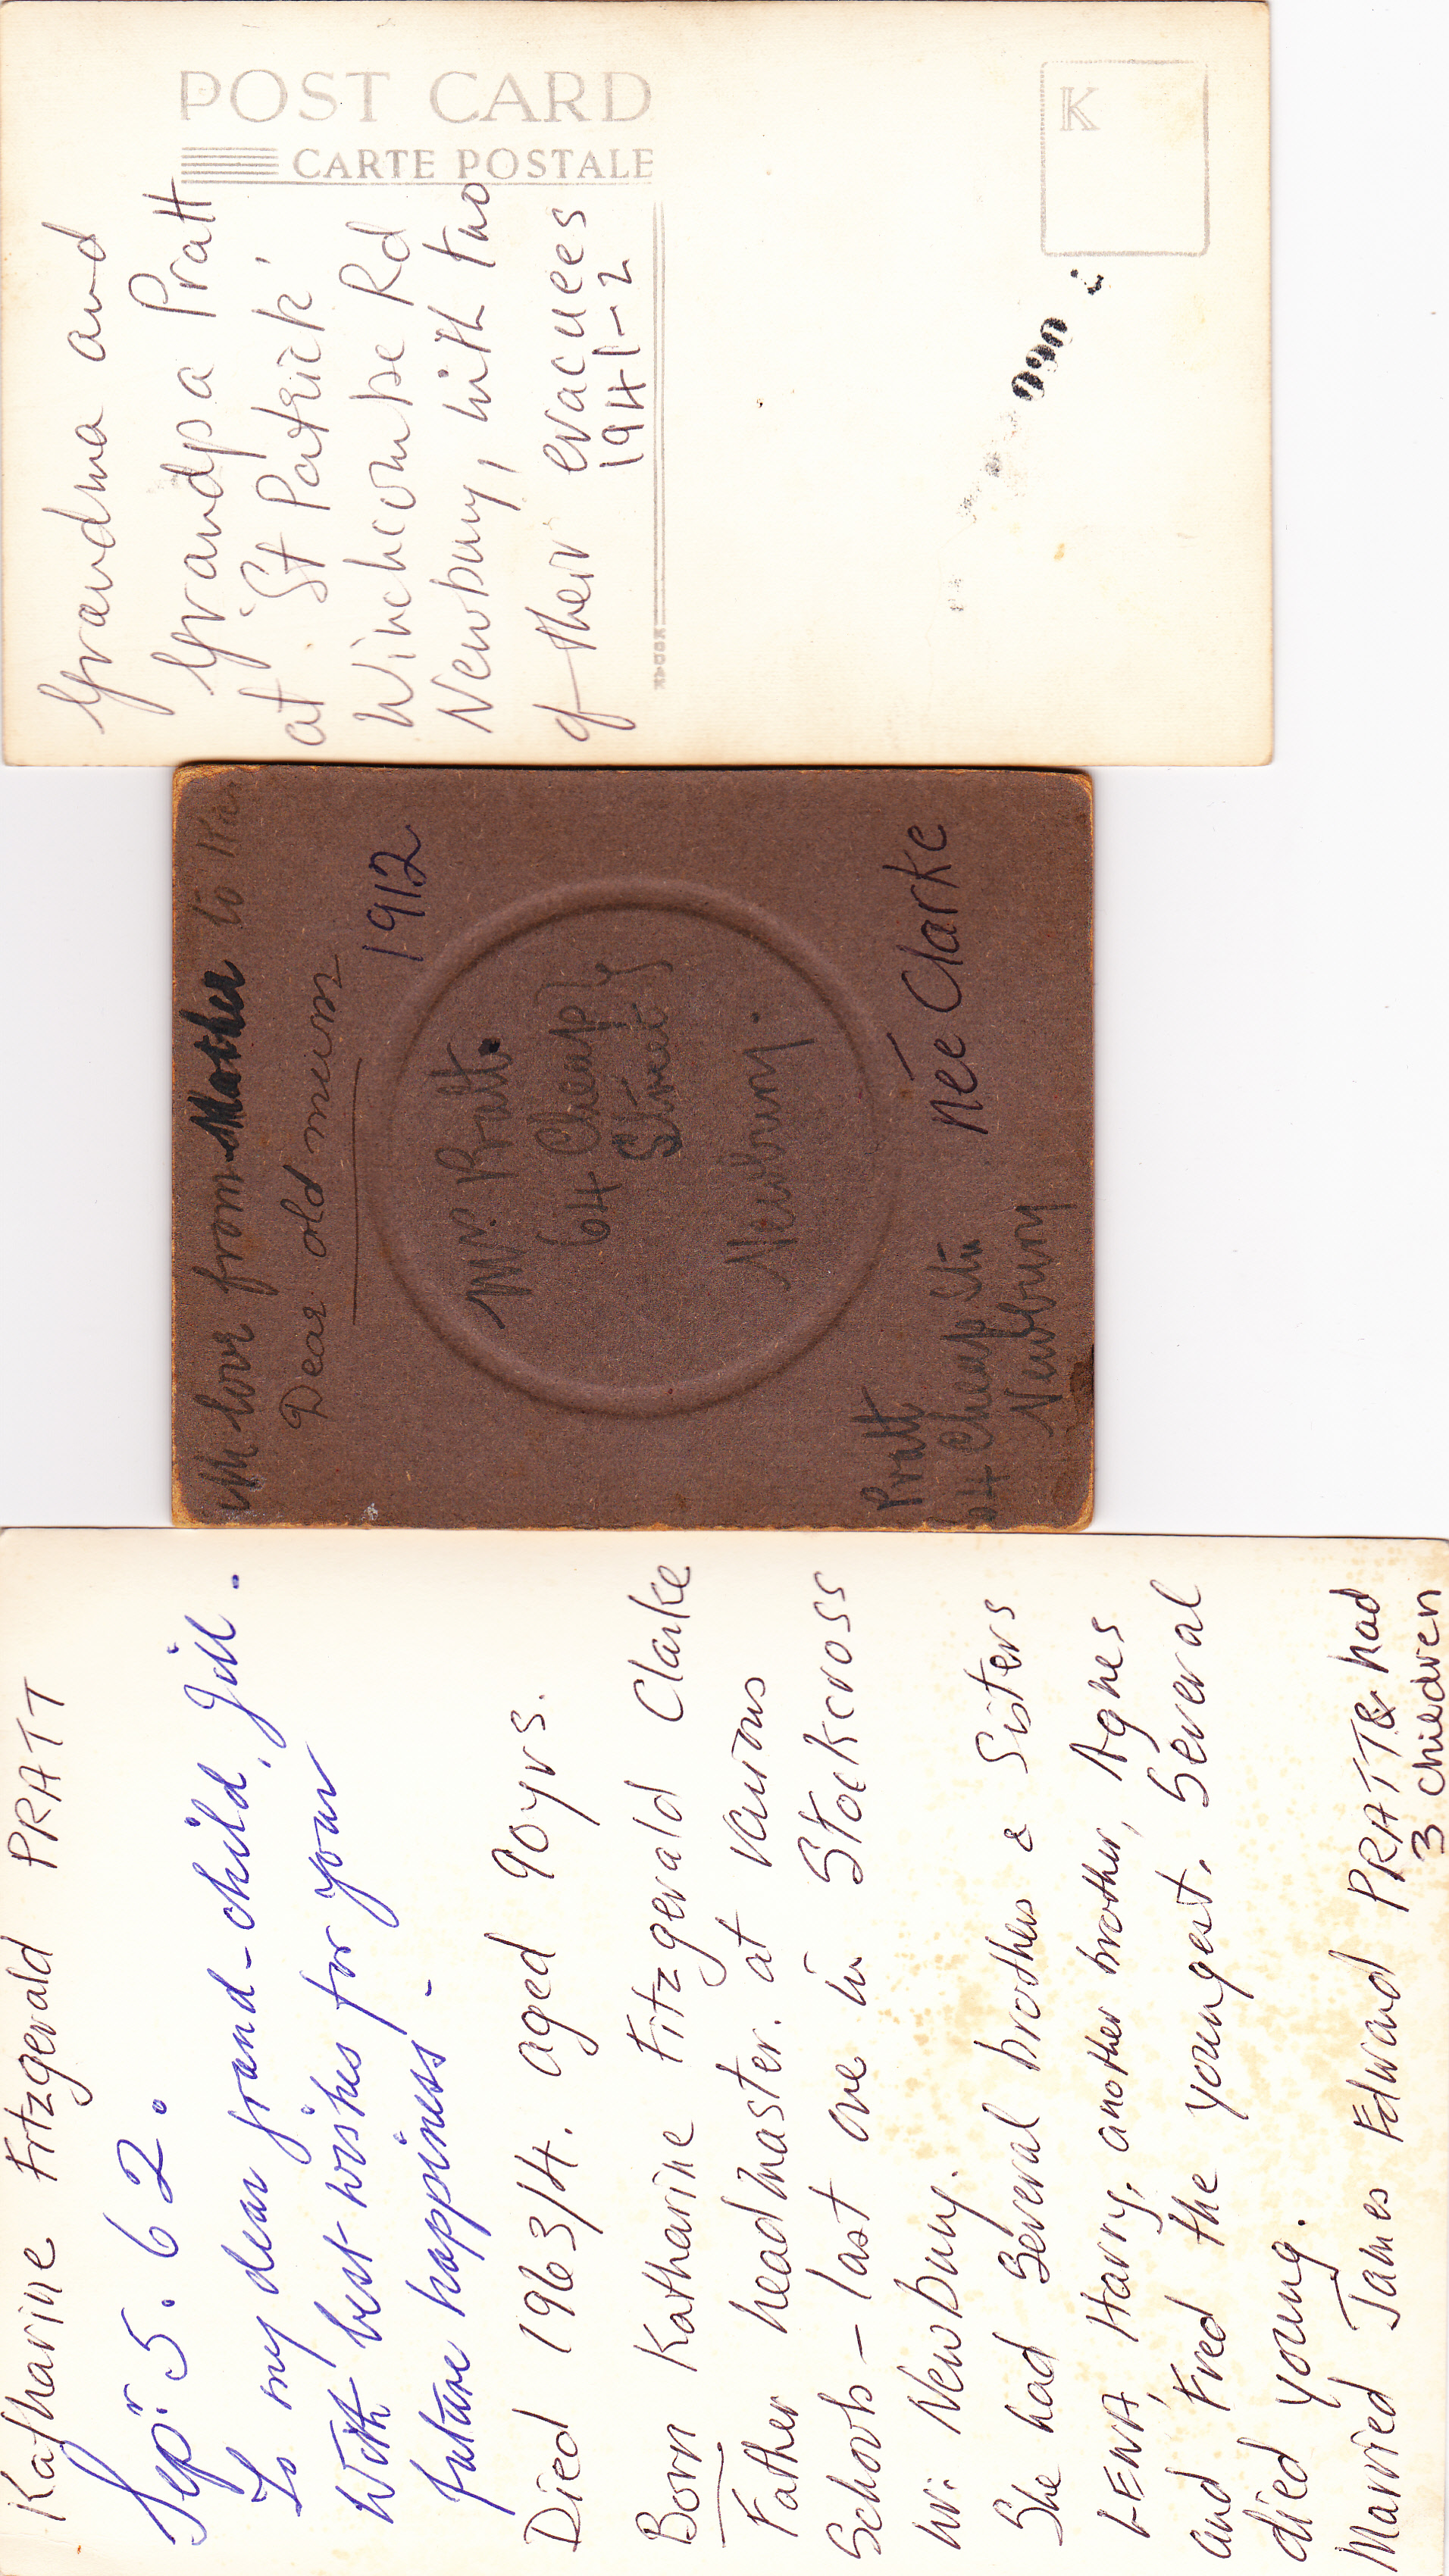 POST CARD
CARTE POSTALE
K
KODAK
Grandma and
Grandpa Pratt
at 'St Patrick'
Winchcombe Rd
Newbury, with two
of their evacuees
1941-2
love from Mother to
Dear old mum
1912
Mrs Pratt.
64 Cheap
Street
Newbury.
née Clarke
Pratt
64 Cheap Str
Newbury
Katharine Fitzgerald PRATT
Sepr. 5. 62.
To my dear grand-child, Jill.
With best wishes for your
future happiness -
Died 1963/4. aged 90yrs.
Born Katharine Fitzgerald Clarke
Father headmaster. at various
Schools - last one in Stockcross
nr. Newbury.
She had several brothers & Sisters
LENA, Harry, another brother, Agnes
and Fred the youngest. Several
died young.
Married James Edward PRATT & had
3 children